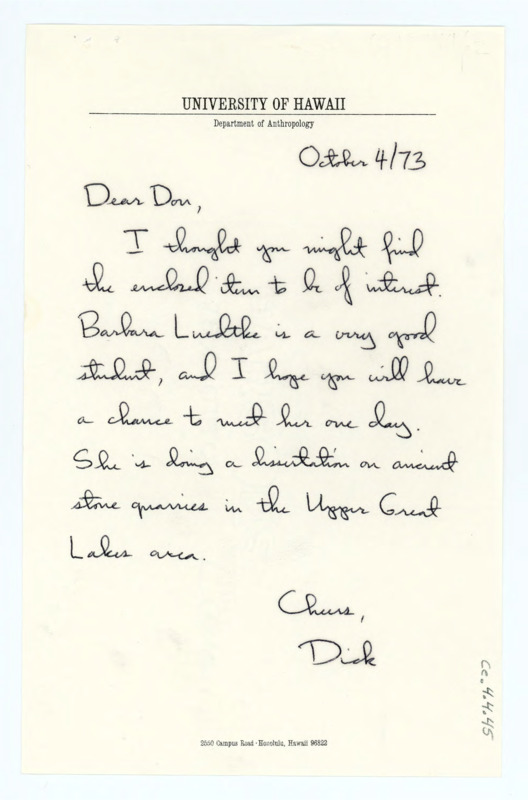 UNIVERSITY OF HAWAII
Department of Anthropology
October 4/73
Dear Don,
I thought you might find
the enclosed item to be of interest.
Barbara Luedtke is a very good
student, and I hope you will have
a chance to meet her one day.
She is doing a dissertation on ancient
stone quarries in the Upper Great
Lakes area.
Cheers,
Dick
2550 Campus Road · Honolulu, Hawaii 96822
Cc.4.4.45